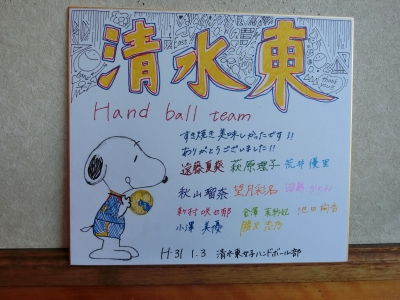 清水東
Hand ball team
すき焼き美味しかったです!!
ありがとうございました!!
遠藤夏葵 萩原理子 荒井優里
秋山瑠奈 望月彩名
新村咲日郁
小澤美優
H.31 1.3 清水東女子ハンドボール部